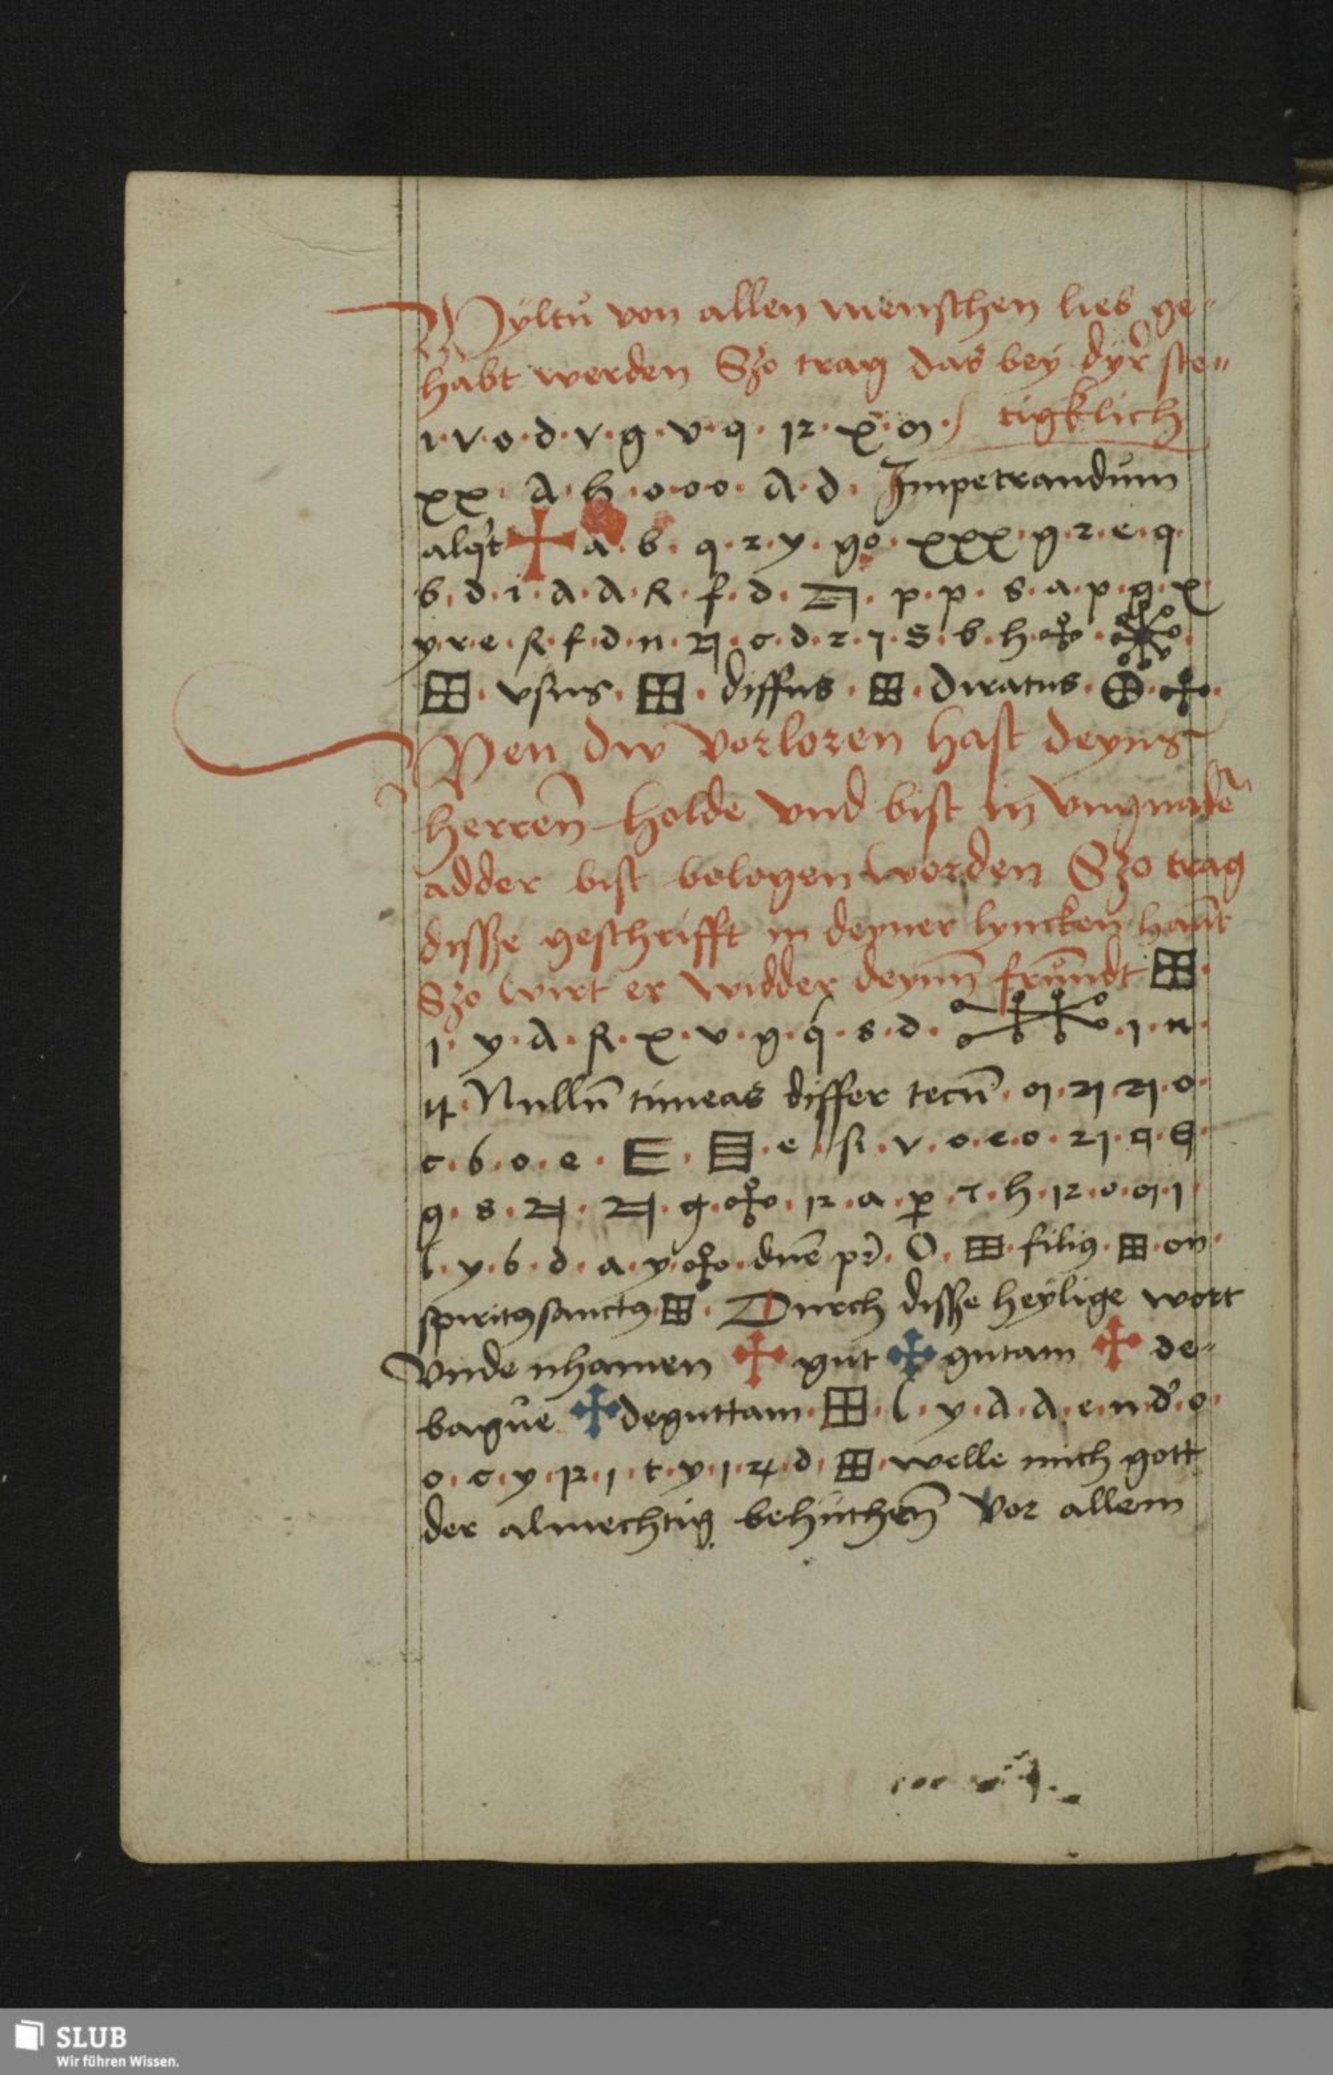 Wyltu von allen menschen lieb ge„
habt werden Szo trag das bey dyr ste„
tigklich
ı·v·o·d·v·g·v·q·12·x·m·
xx· A·h·o·o·o·A·d· Impetrandum
alqt ✠ a·b·q·2·y·go·xxx·g·2·e·q·
b·d·i·A·A·R·f·d· ·p·p·s·a·p·g·x
y·r·e·R·f·d·n·21·c·d·2·7·S·b·h·
⊞· vsus· ⊞· diffus· ⊞· diratus· ⊕·
Wen dw vorloren hast deyns
herren̄ holde vnd bist in vngnadē
adder bist belogen worden Szo trag
disße geschrifft in deyner lyncken hant
Szo wirt er widder deynn̄ frundt ⊞·
1·y·A·R·x·v·g·q·s·d· ·1·n·
4·Nullū timeas differ tecū·m·21·21·o·
c·b·o·e·E· ·e·R·v·o·e·o·21·q·
g·8·21·21·g· ·12·a·p·7·h·12·o·m·1
l·y·b·d·a·y· ·dnē pr̄·O·⊞·filiꝯ·⊞·on·
spiritꝯsanctꝯ·⊞· Durch disße heylige wort
Vnde nhamen ✠ gut ✠ gutam ✠ de-
bague ✠ deguttam·⊞·l·y·A·A·e·n·d·o·
o·c·y·12·1·t·y·1·4·d·⊞·welle mich gott
der almechtig behuthen̄ vor allem
SLUB
Wir führen Wissen.